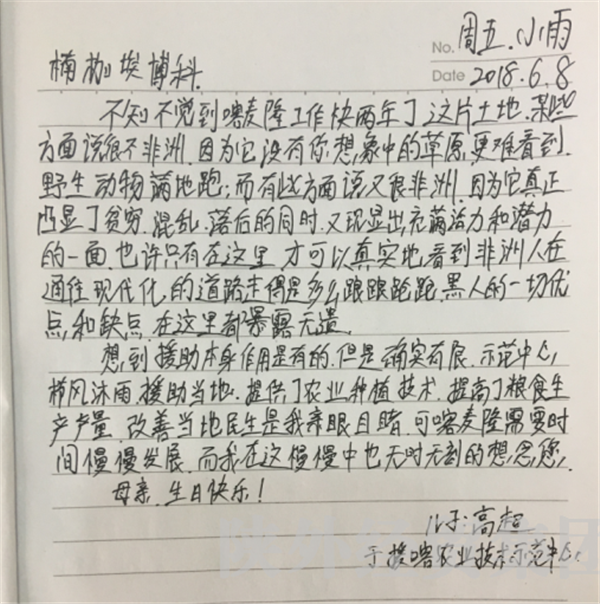 No. 周五.小雨
Date 2018.6.8
楠枷埃博科.
不知不觉到喀麦隆工作快两年了.这片土地.某些
方面说很不非洲.因为它没有你想象中的草原.更难看到.
野生动物满地跑;而有些方面说又很非洲.因为它真正
凸显了贫穷.混乱.落后的同时.又现显出充满活力和潜力
的一面.也许只有在这里.才可以真实地看到非洲人在
通往现代化的道路走得是多么踉踉跄跄.黑人的一切优
点和缺点.在这里都暴露无遗.
想到援助本身作用是有的.但是确实有限.示范中心.
栉风沐雨.援助当地.提供了农业种植技术.提高了粮食生
产产量.改善当地民生是我亲眼目睹.可喀麦隆需要时
间慢慢发展.而我在这慢慢中也无时无刻的想念您.
母亲.生日快乐!
儿子:高超
于援喀农业技术示范中心.